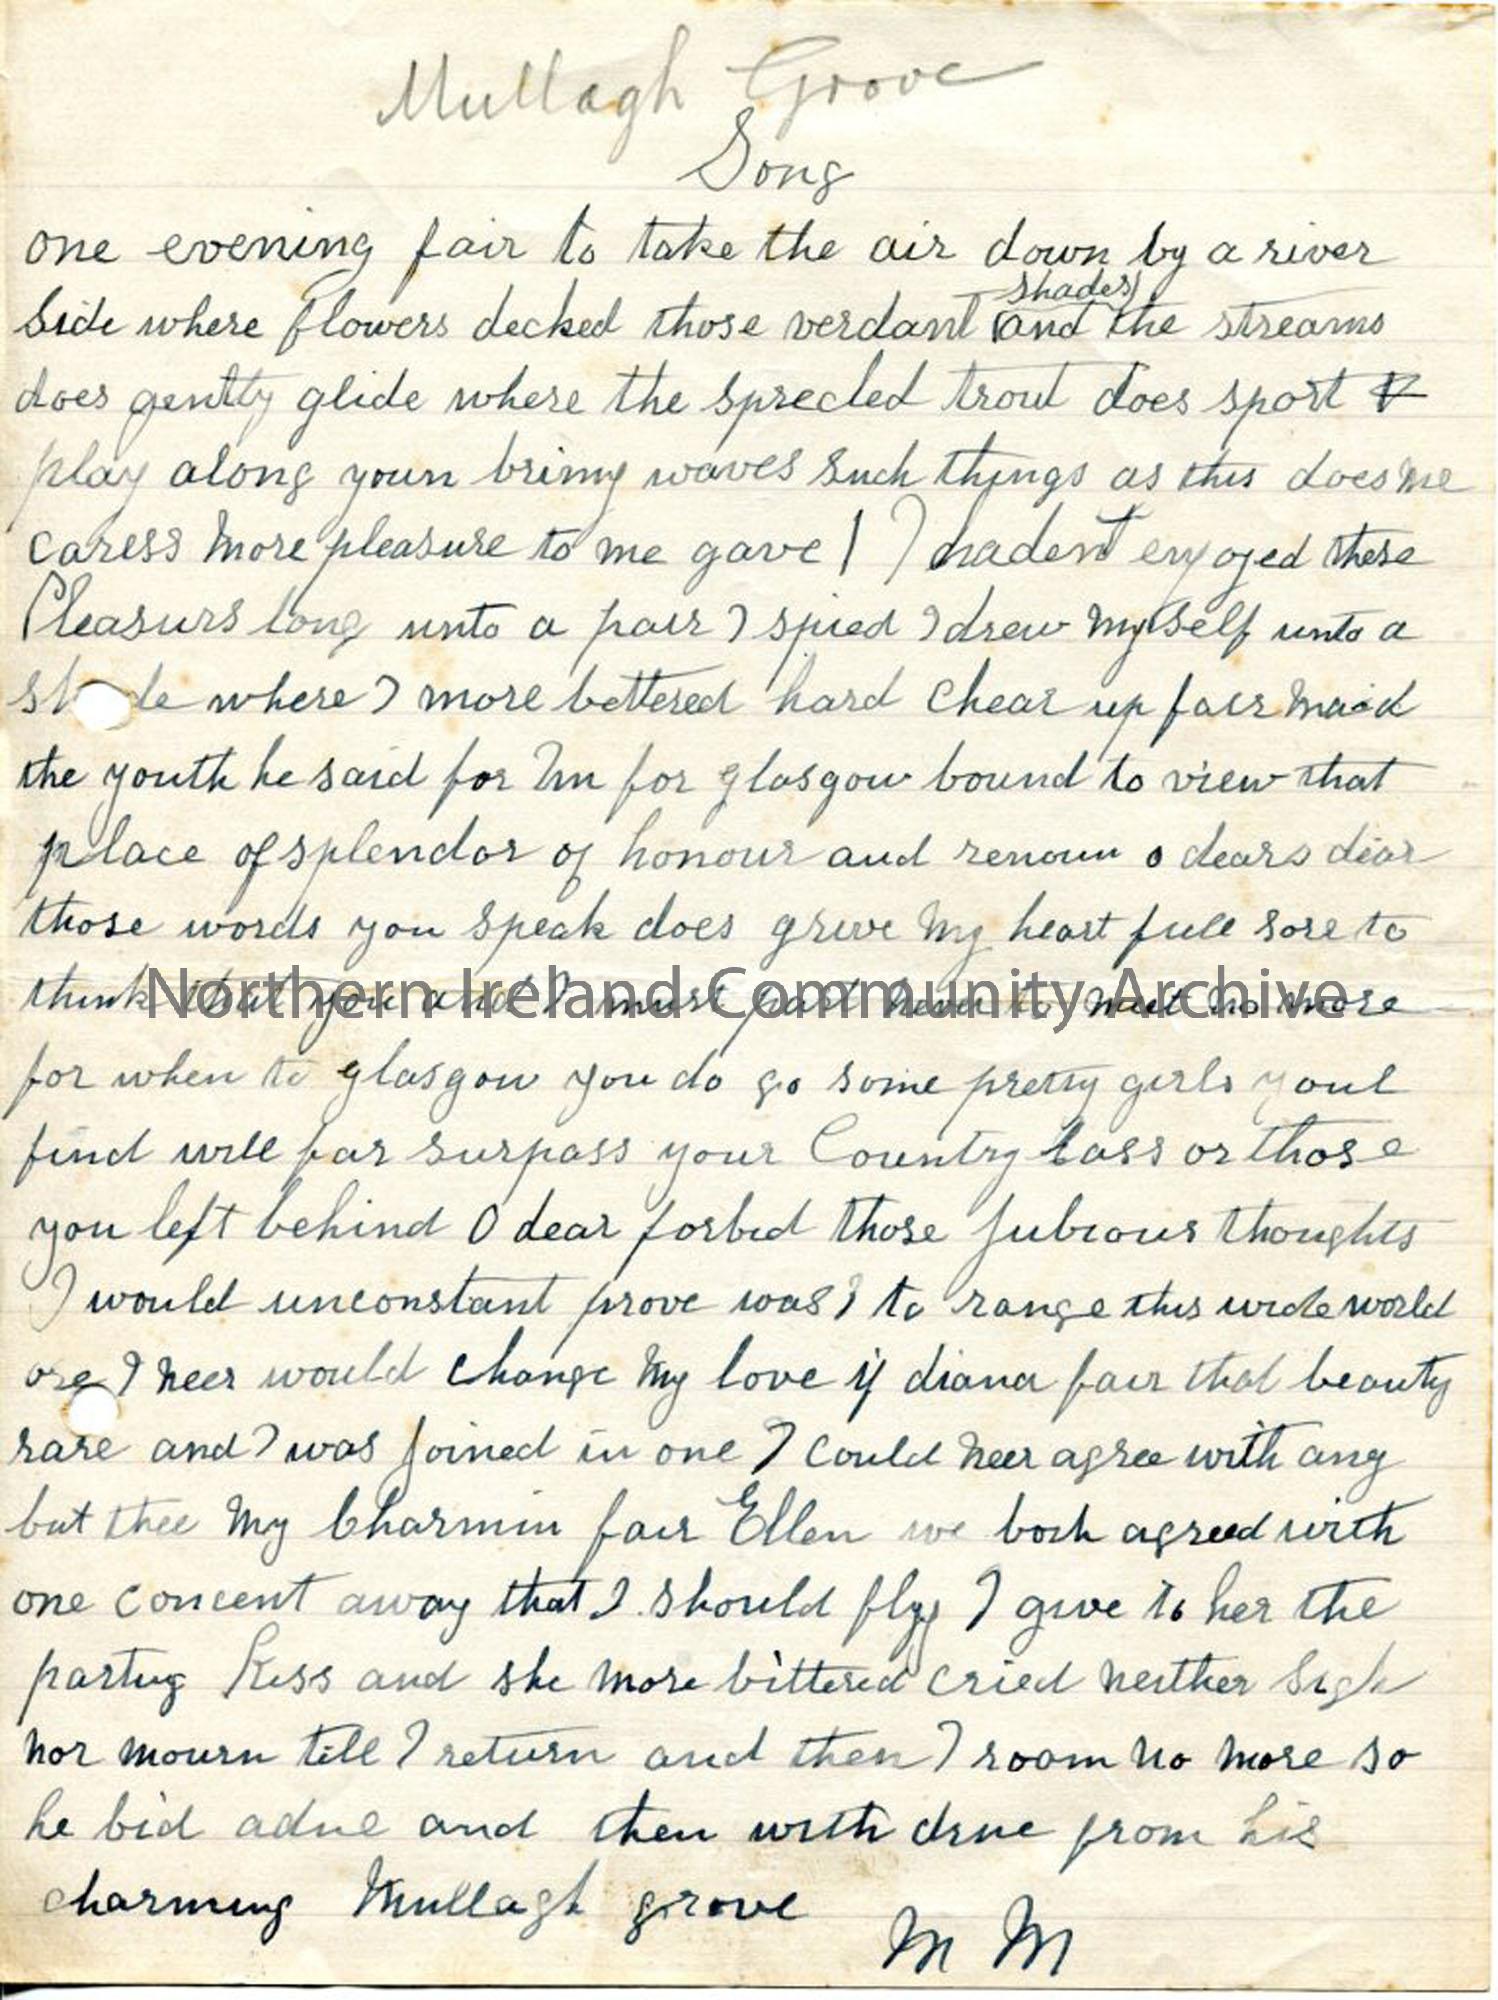 Mullagh Grove
Song
one evening fair to take the air down by a river
side where flowers decked those verdant shades and the streams
does gently glide where the sprecled trout does sport &
play along youn briny waves such things as this does me
caress more pleasure to me gave I hadent enjoyed these
Pleasurs long unto a pair I spied I drew myself unto a
sh de where I more bettered hard chear up fair maid
the youth he said for Im for glasgow bound to view that
place of splendor of honour and renoun o dears dear
those words you speak does grive my heart full sore to
think that you and I must part never to meet no more
Northern Ireland Community Archive
for when to glasgow you do go some pretty girls youl
find will far surpass your Country lass or those
you left behind O dear forbid those jubious thoughts
I would unconstant prove was I to range this wide world
ore I neer would change my love if diana fair that beauty
rare and I was joined in one I could neer agree with any
but thee my Charmin fair Ellen we both agreed with
one concent away that I should fly I give to her the
parting Kiss and she more bittered cried neither sigh
nor mourn till I return and then I roam no more so
he bid adue and then with drue from his
charming Mullagh grove
M M